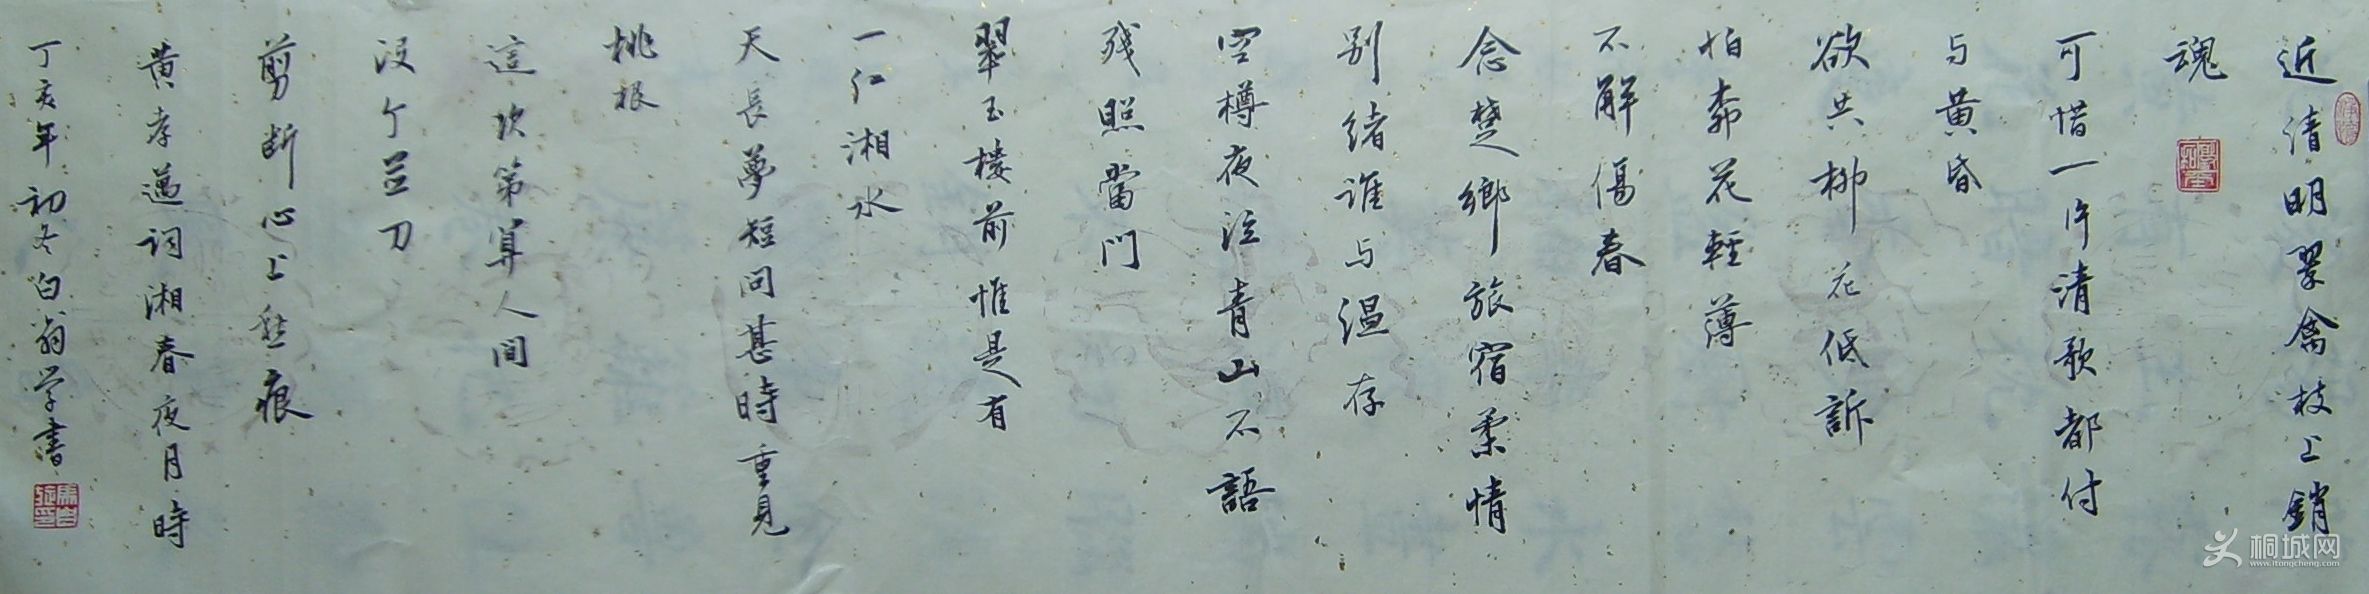 近清明翠禽枝上銷
魂
可惜一片清歌都付
与黄昏
欲共柳花低訴
怕柳花輕薄
不解傷春
念楚鄉旅宿柔情
别緒谁与温存
空樽夜泣青山不語
残照當門
翠玉楼前惟是有
一江湘水
天長夢短问甚時重見
桃根
這次第算人间
没个并刀
剪断心上愁痕
黄孝邁词湘春夜月時
丁亥年初冬白翁学書
桐城网
www.itongcheng.com